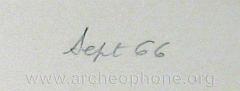 Sept 66
www.archeophone.org